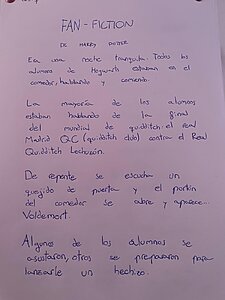 FAN-FICTION
DE HARRY POTTER
Era una noche tranquila. Todos los
alumnos de Hogwarts estaban en el
comedor, hablando y comiendo.
La mayoría de los alumnos
estaban hablando de la final
del mundial de quidditch: el real
Madrid QC (quidditch club) contra el Real
Quidditch Lechuzón.
De repente se escucha un
quejido de puerta y el portón
del comedor se abre y aparece...
Voldemort.
Algunos de los alumnos se
asustaron, otros se prepararon para
lanzarle un hechizo.